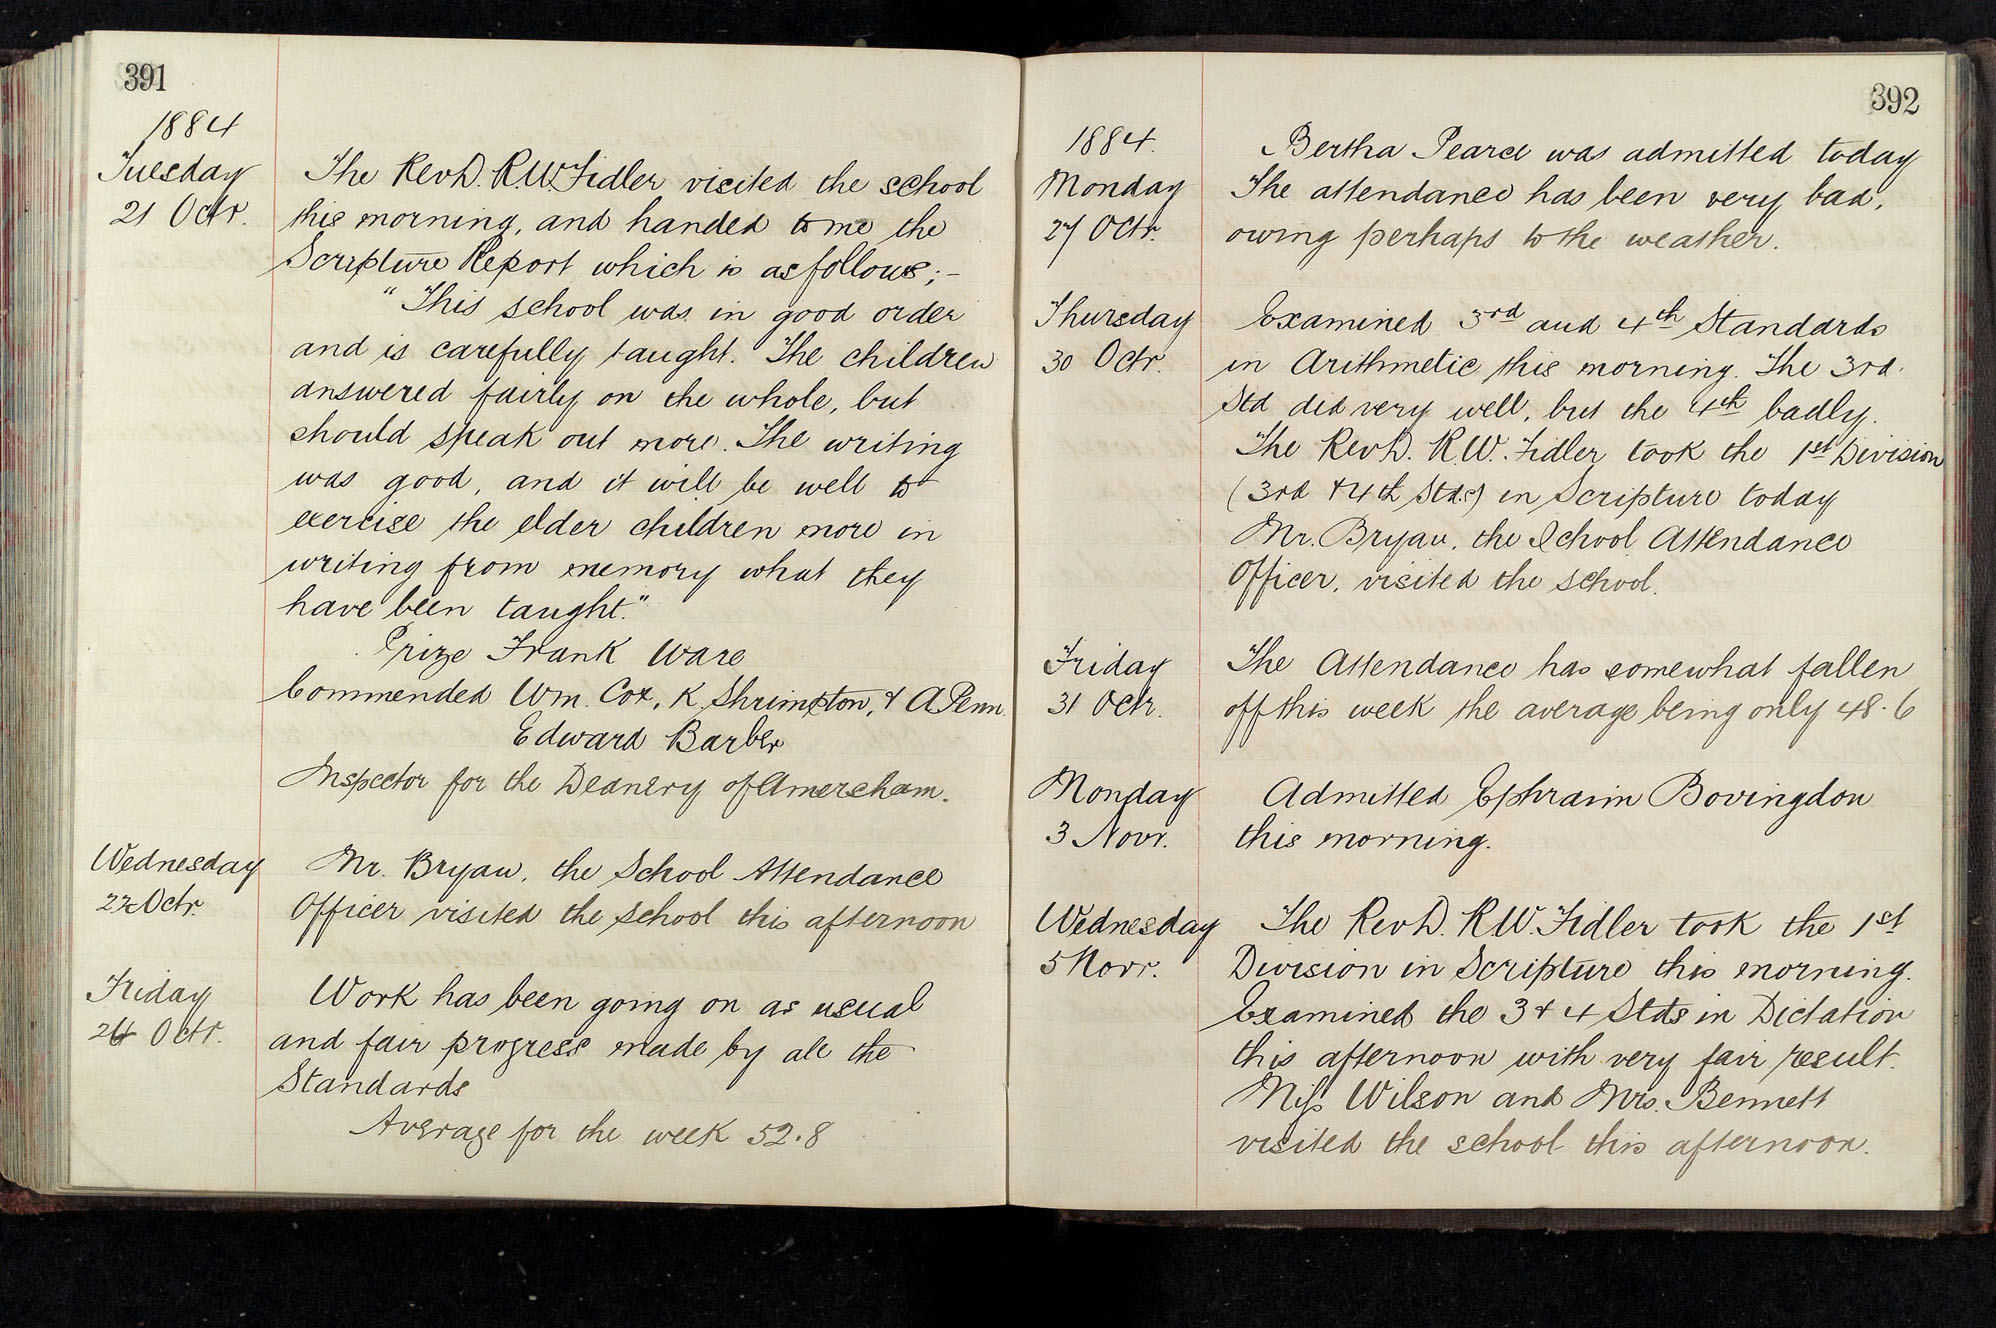 391
1884
Tuesday
21 Octr.
The Revd. R.W. Fidler visited the school
this morning, and handed to me the
Scripture Report which is as follows;-
"This school was in good order
and is carefully taught. The children
answered fairly on the whole, but
should speak out more. The writing
was good, and it will be well to
exercise the elder children more in
writing from memory what they
have been taught."
Prize Frank Ware
Commended Wm. Cox, K. Shrimpton, & A Penn
Edward Barber
Inspector for the Deanery of Amersham.
Wednesday
22 Octr.
Mr. Bryan, the School Attendance
Officer visited the school this afternoon
Friday
24 Octr.
Work has been going on as usual
and fair progress made by all the
Standards
Average for the week 52.8
392
1884.
Monday
27 Octr.
Bertha Pearce was admitted today
The attendance has been very bad,
owing perhaps to the weather.
Thursday
30 Octr.
Examined 3rd and 4th Standards
in Arithmetic this morning. The 3rd.
Std did very well, but the 4th badly.
The Revd. R.W. Fidler took the 1st Division
(3rd & 4th Stds) in Scripture today
Mr. Bryan, the School Attendance
Officer, visited the school.
Friday
31 Octr.
The Attendance has somewhat fallen
off this week the average being only 48.6
Monday
3 Novr.
Admitted Ephraim Bovingdon
this morning.
Wednesday
5 Novr.
The Revd. R.W. Fidler took the 1st
Division in Scripture this morning.
Examined the 3 & 4 Stds in Dictation
this afternoon with very fair result.
Miss Wilson and Mrs. Bennett
visited the school this afternoon.